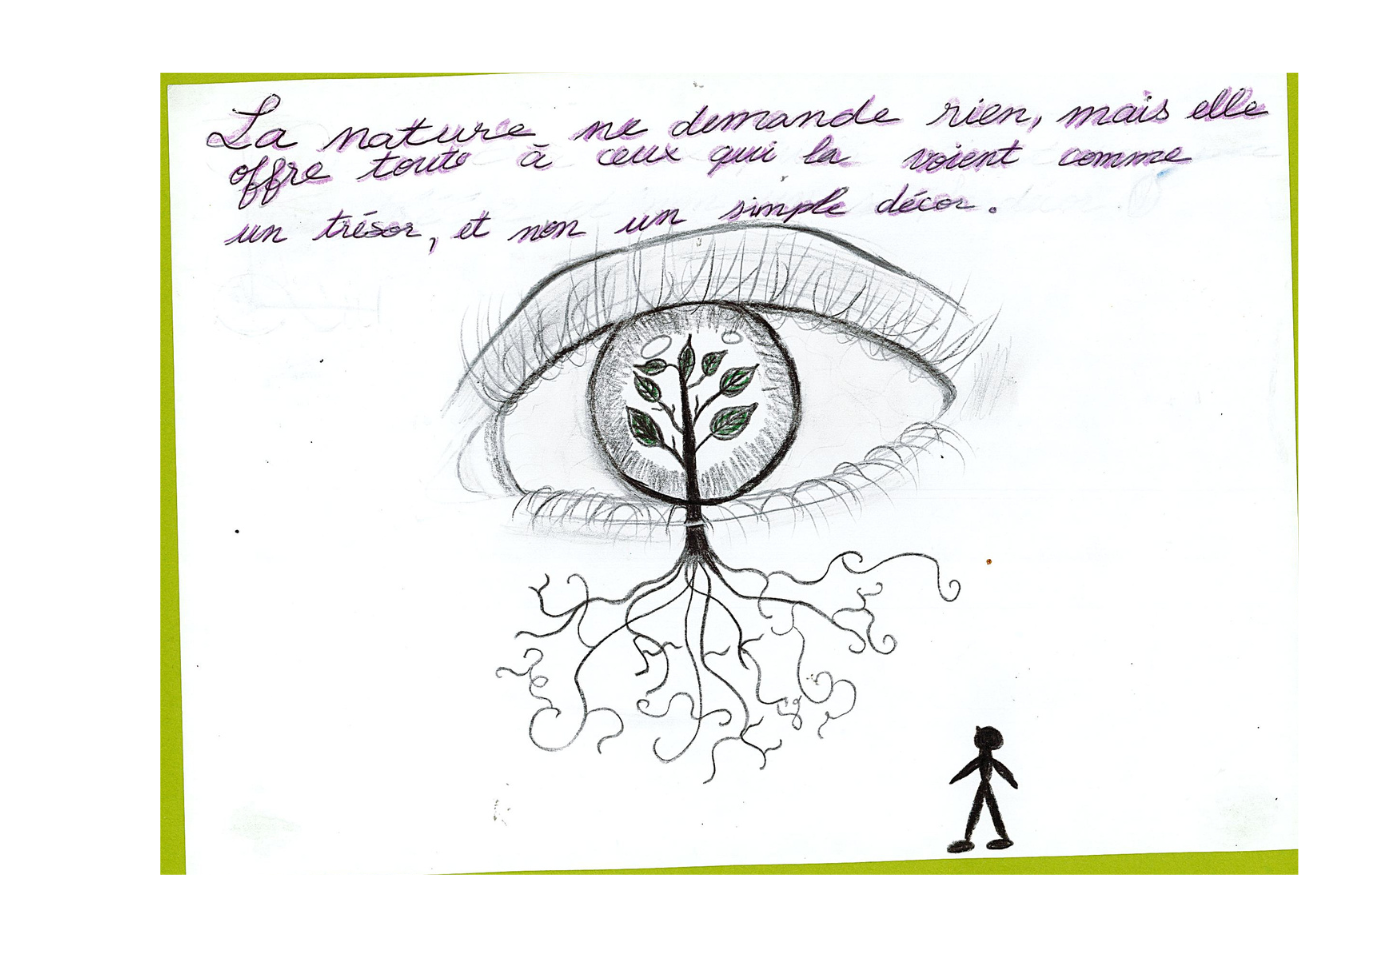 La nature ne demande rien, mais elle
offre toute à ceux qui la voient comme
un trésor, et non un simple décor.